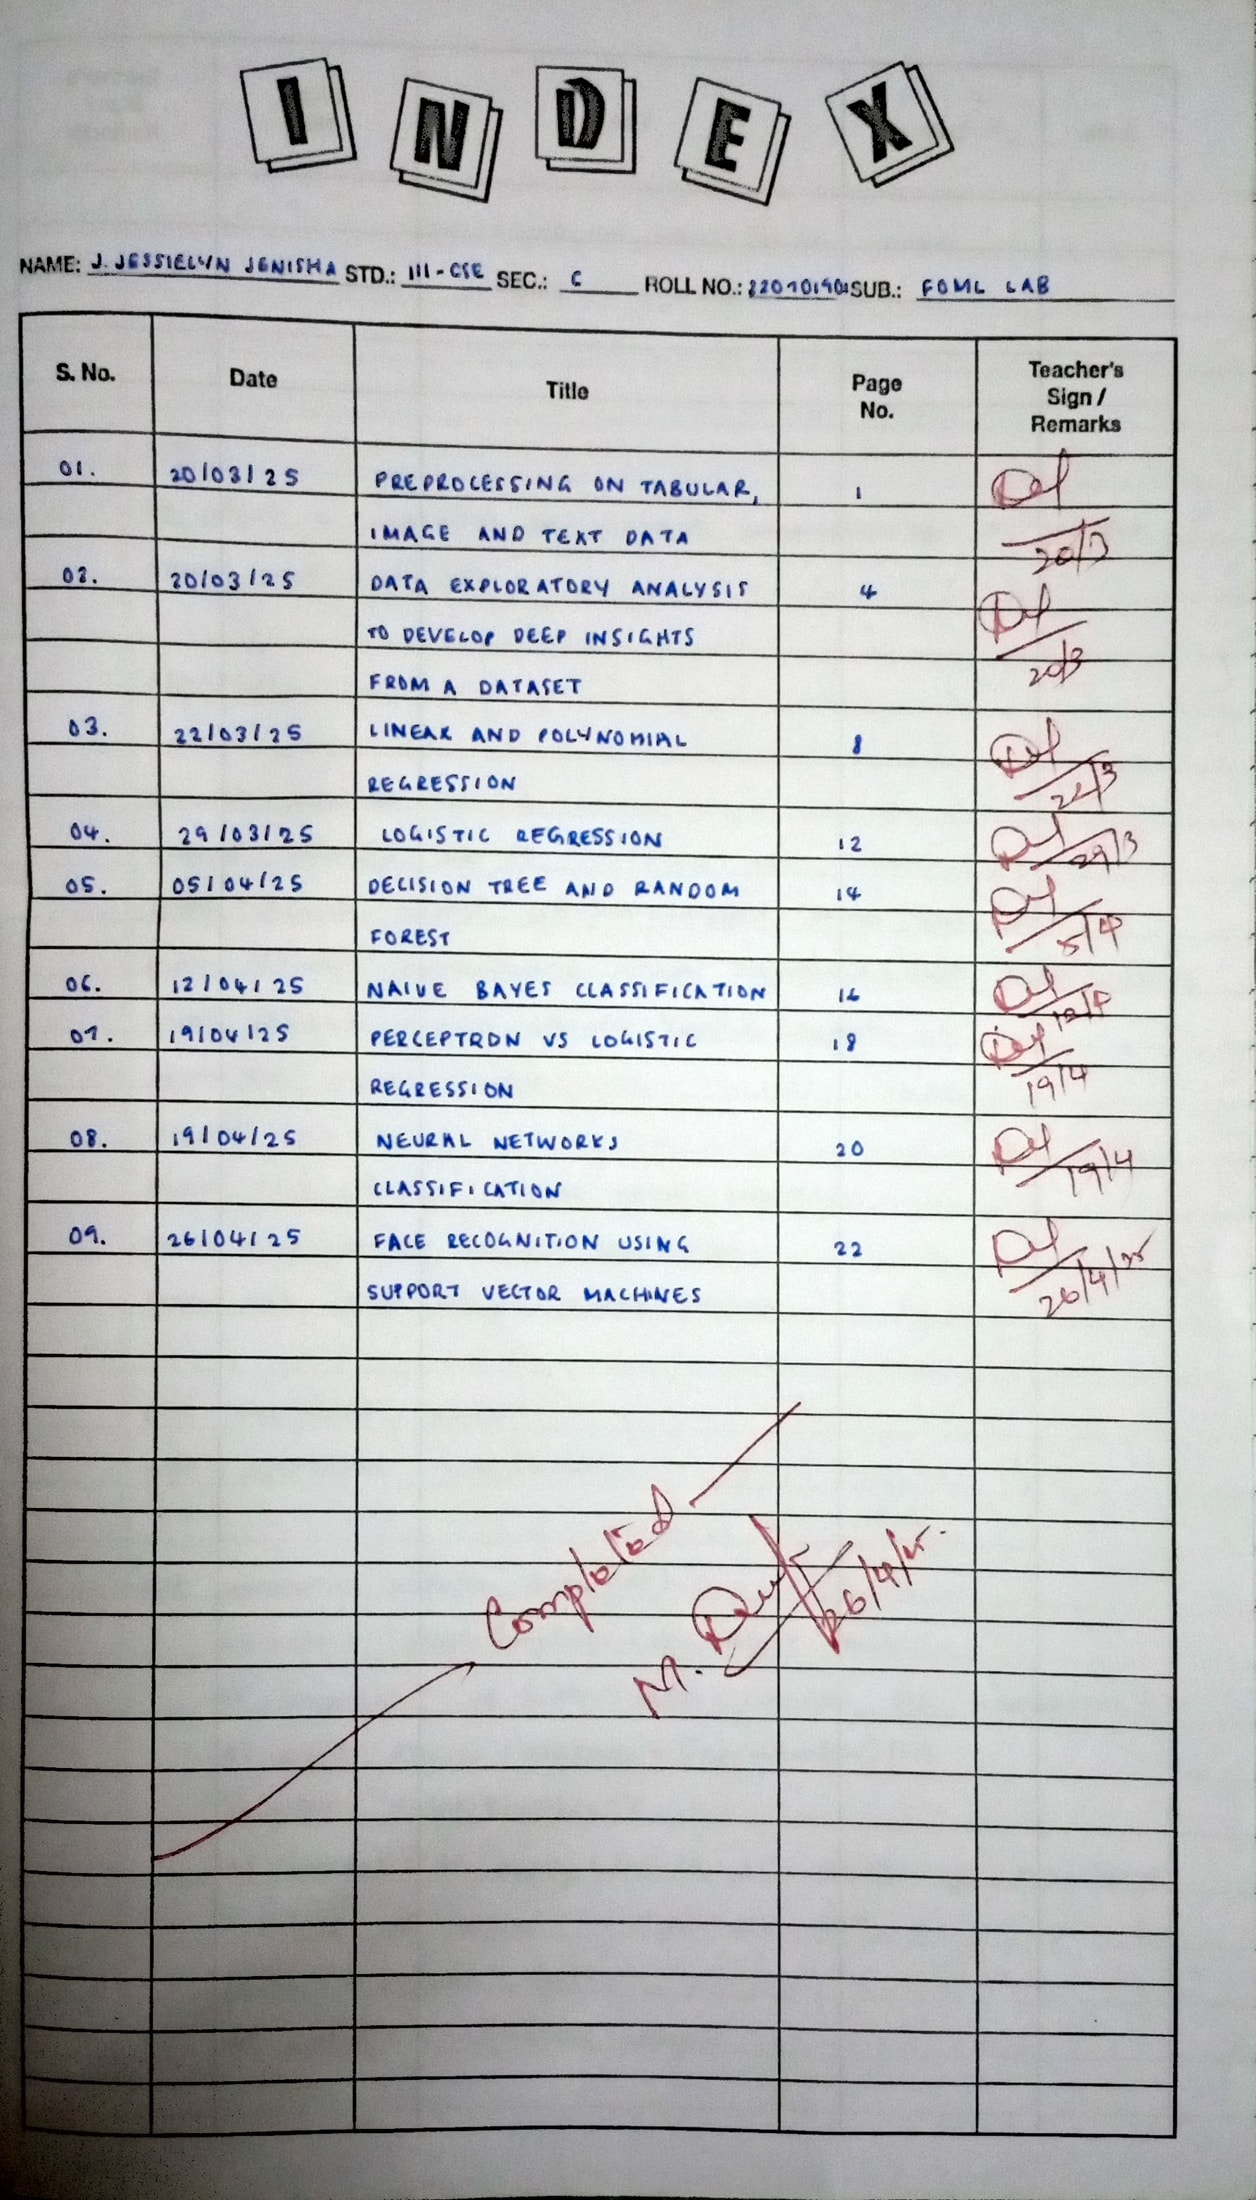 INDEX
NAME: J. JESSIELYN JENISHA STD.: III - CSE SEC.: C ROLL NO.: SUB.: FOML LAB
S. No. Date Title Page No. Teacher's Sign / Remarks
01. 20/03/25 PREPROCESSING ON TABULAR, 1
IMAGE AND TEXT DATA 20/3
02. 20/03/25 DATA EXPLORATORY ANALYSIS 4
TO DEVELOP DEEP INSIGHTS
FROM A DATASET 20/3
03. 22/03/25 LINEAR AND POLYNOMIAL 8
REGRESSION 22/3
04. 29/03/25 LOGISTIC REGRESSION 12 29/3
05. 05/04/25 DECISION TREE AND RANDOM 14
FOREST 5/4
06. 12/04/25 NAIVE BAYES CLASSIFICATION 16 12/4
07. 19/04/25 PERCEPTRON VS LOGISTIC 18
REGRESSION 19/4
08. 19/04/25 NEURAL NETWORKS 20
CLASSIFICATION 19/4
09. 26/04/25 FACE RECOGNITION USING 22
SUPPORT VECTOR MACHINES 26/4/25
Completed
M. 26/4/25